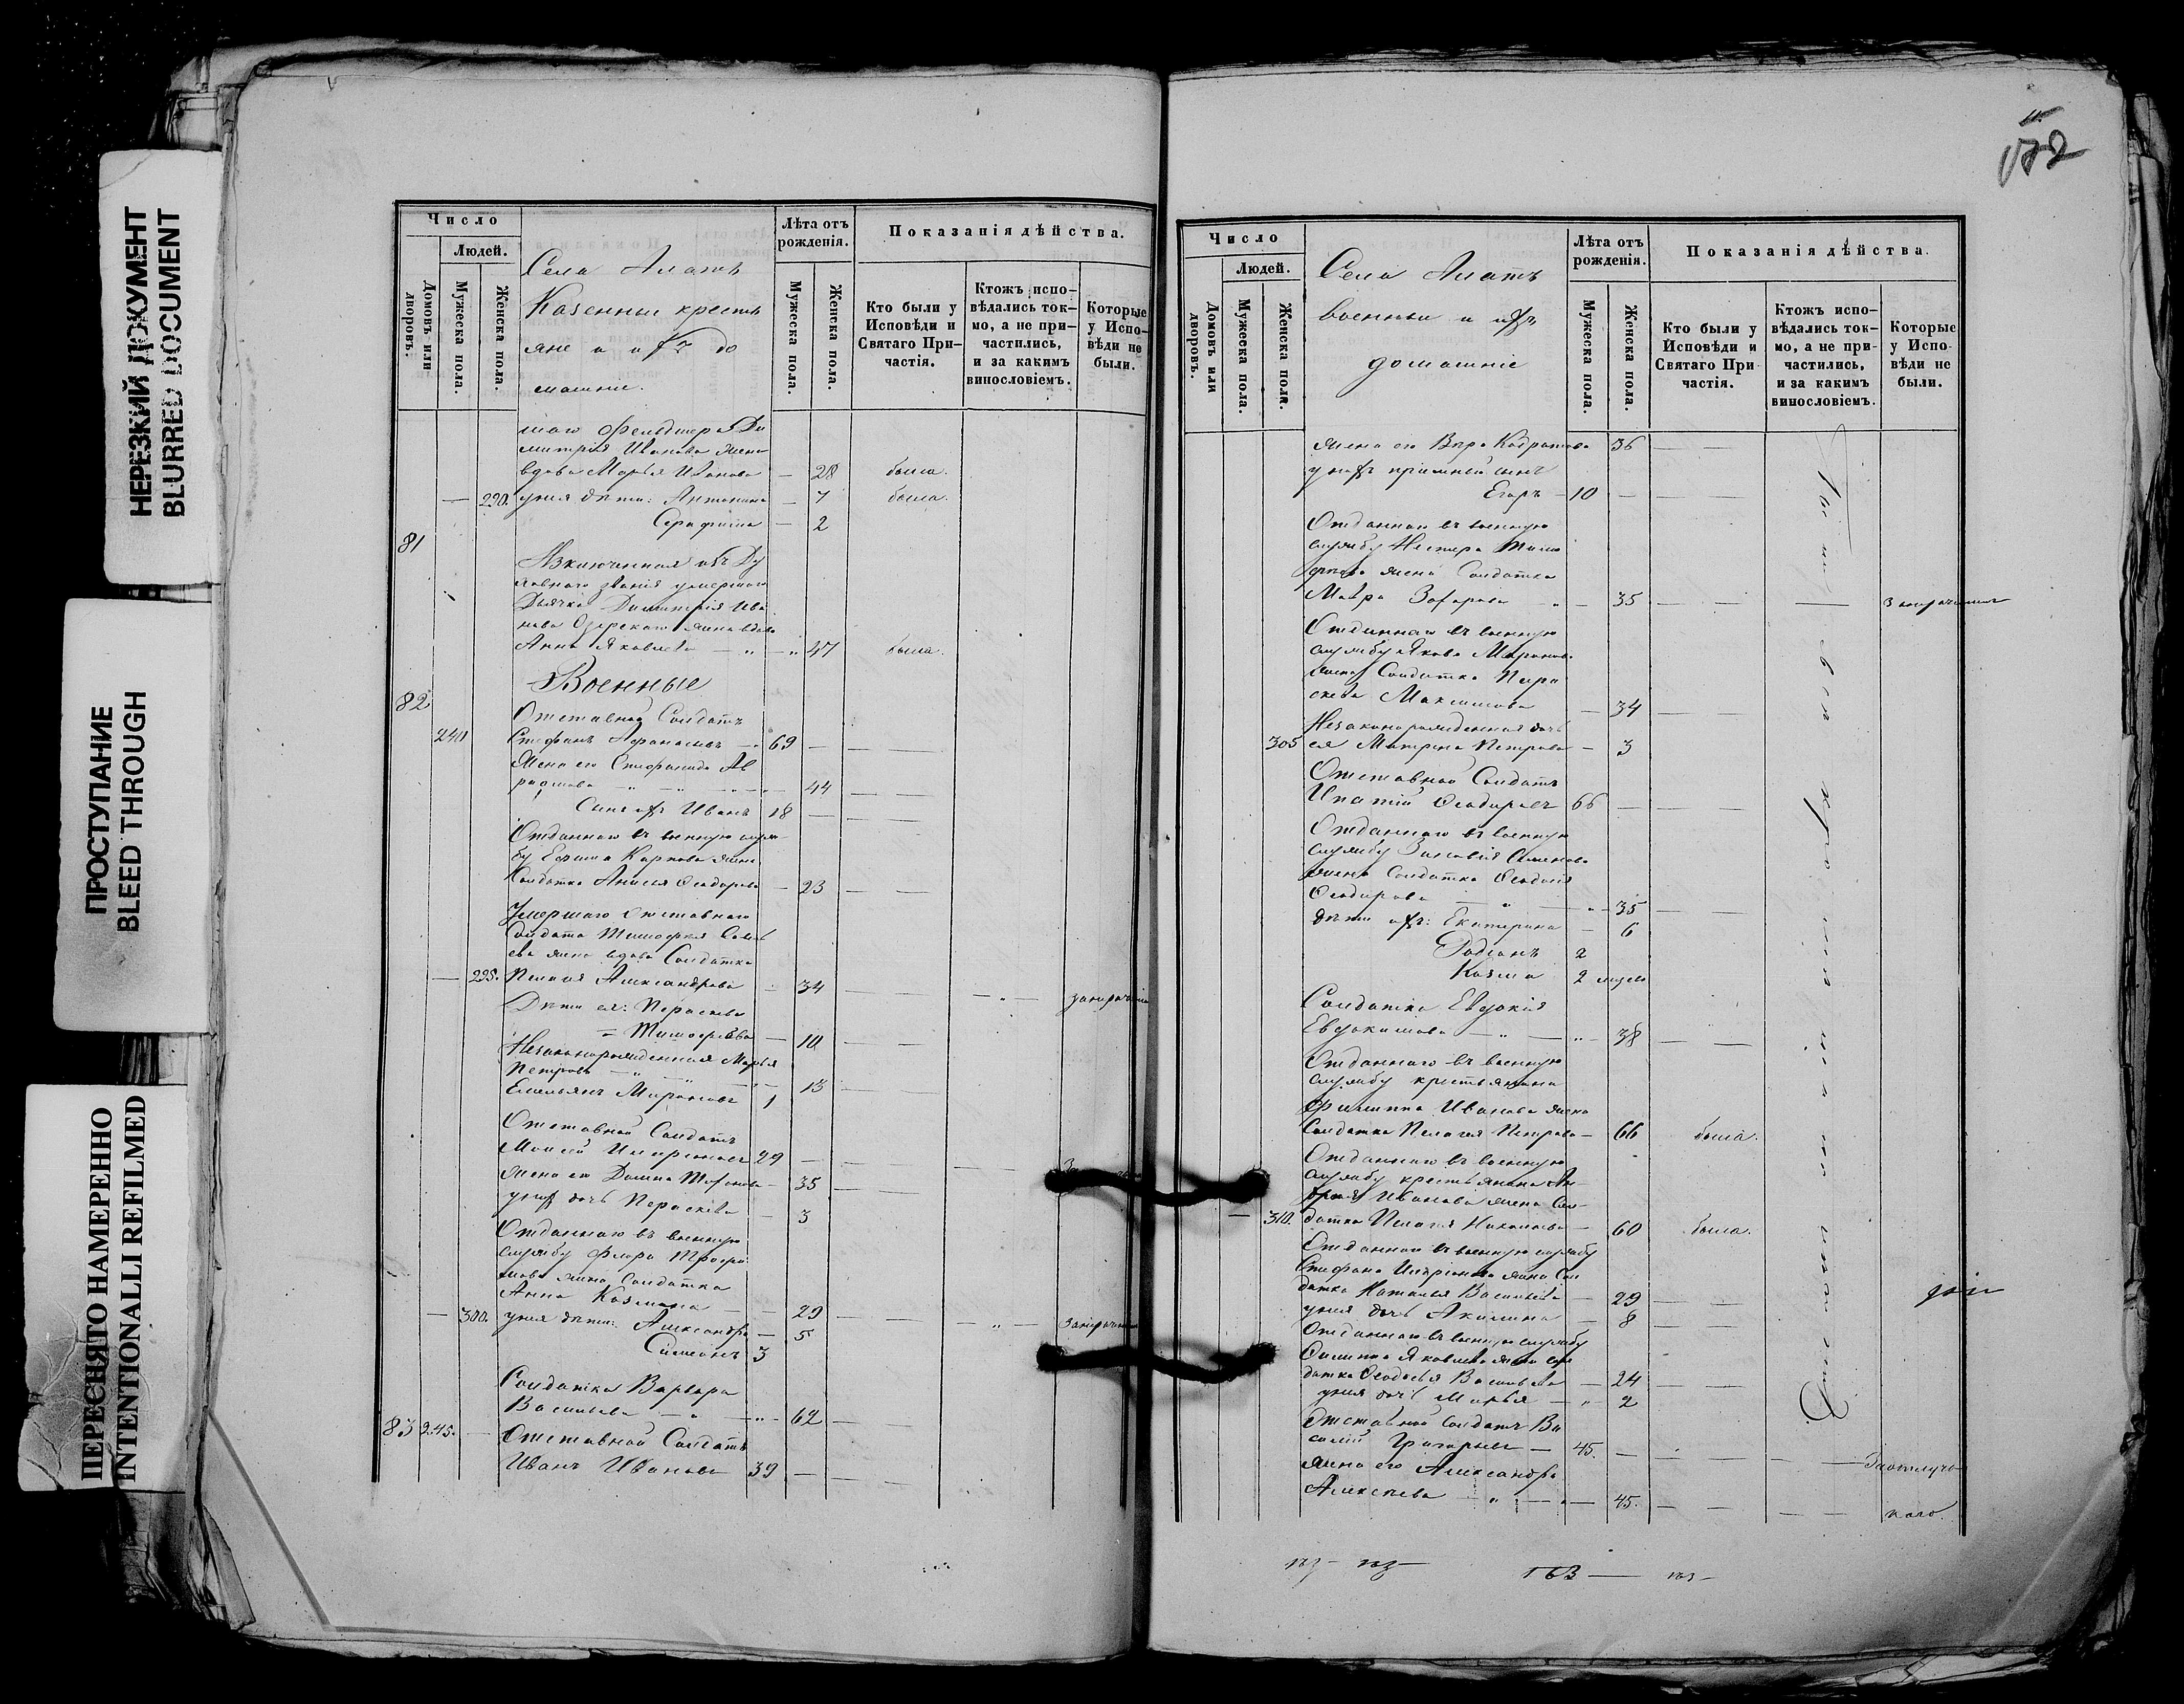 НЕРЕЗКИЙ ДОКУМЕНТ
BLURRED DOCUMENT
ПРОСТУПАНИЕ
BLEED THROUGH
ПЕРЕСНЯТО НАМЕРЕННО
INTENTIONALLI REFILMED
Число
Людей.
Домовъ или дворовъ.
Мужеска пола.
Женска пола.
Села Алатъ
Казенные кресть
яне и ихъ до
машніе.
Лѣта отъ рожденія.
Мужеска пола.
Женска пола.
Показанія дѣйства.
Кто были у Исповѣди и Святаго При-частія.
Ктожъ испо-вѣдались ток-мо, а не при-частились, и за какимъ винословіемъ.
Которые у Испо-вѣди не были.
шаго Фельдшера Ди
митрія Иванова жена
вдова Марья Иванова — 28 была.
— 290. унея дѣти: Антонина — 7 была.
Серафима — 2
81
Изключенная изъ Ду
ховнаго званія умершаго
Дьячка Димитрія Ива
нова Озерскаго жена вдова
Анна Яковлева — 47 была.
Военные
82
Отставной Солдатъ
240 Стефанъ Афанасьевъ — 69 — —
Жена его Степанида Ав
рамова — 44 — —
Сынъ ихъ Иванъ 18 — —
Отданнаго въ военную служ
бу Ефима Карпова жена
Солдатка Анисья Феодорова — 23 — —
Умершаго отставнаго
Солдата Тимофея
ева жена вдова Солдатка
— 295. Пелагея Александрова — 34 — — — " —
Дѣти ея: Параскева
= Тимофеева — 10 — —
Незаконорожденная Марья
Петрова — 13 — —
Емельянъ Мироновъ 1
Отставной Солдатъ
Моисей Иларіоновъ 29 — —
Жена его Домна — 35 — —
унихъ дочь Параскева — 3
Отданнаго въ военную
службу Флора Трофи
мова жена Солдатка
Анна Козмина — 29
— 300. унея дѣти: Александра — 5
Симеонъ 3
Солдатка Варвара
Васильева — 62 — —
83 245. — Отставной Солдатъ
Иванъ Ивановъ 39 — —
172
Число
Людей.
Домовъ или дворовъ.
Мужеска пола.
Женска пола.
Села Алатъ
военные и ихъ
домашніе
Лѣта отъ рожденія.
Мужеска пола.
Женска пола.
Показанія дѣйства.
Кто были у Исповѣди и Святаго При частія.
Ктожъ испо-вѣдались ток-мо, а не при-частились, и за какимъ винословіемъ.
Которые у Испо-вѣди не были.
жена его Вѣра Кодратова 36 — —
у нихъ пріемный сынъ
Егоръ — 10 — —
Отданнаго въ военную
службу Нестера Тимо
фѣева жена Солдатка
Мавра Захарова — 35 — — —
Отданнаго въ военную
службу Якова Миронова
жена Солдатка Пара
скева Максимова — 34 — —
Незаконорожденная дочь
305 ея Матрена Петрова — 3
Отставной Солдатъ
Ипатій Феодоровъ 66 — —
Отданнаго въ военную
службу Зиновія Семенова
жена Солдатка Феодосія
Феодорова — 35 — —
дѣти ихъ: Екатерина — 6
Родіонъ 2
Козма 2 недѣли
Солдатка Евдокія
Евдокимова — 38 — —
Отданнаго въ военную
службу крестьянина
Филиппа Иванова жена
Солдатка Пелагея Петрова — 66 была.
Отданнаго въ военную
службу крестьянина Ан
дрея Иванова жена Сол
— 310. датка Пелагея Николаева — 60 была.
Отданнаго въ военную службу
Стефана Иларіонова жена Сол
датка Наталья Васильева — 29 — —
унея дочь Акилина — 8 — —
Отданнаго въ военную службу
Филиппа Яковлева жена Сол
датка Феодосья Васильева — 24 — —
унея дочь Марья — " 2
Отставной Солдатъ Ва
силій Григорьевъ — 45. — — — — За отлуч
жена его Александра
Алексѣева — 45. — — — — кою.